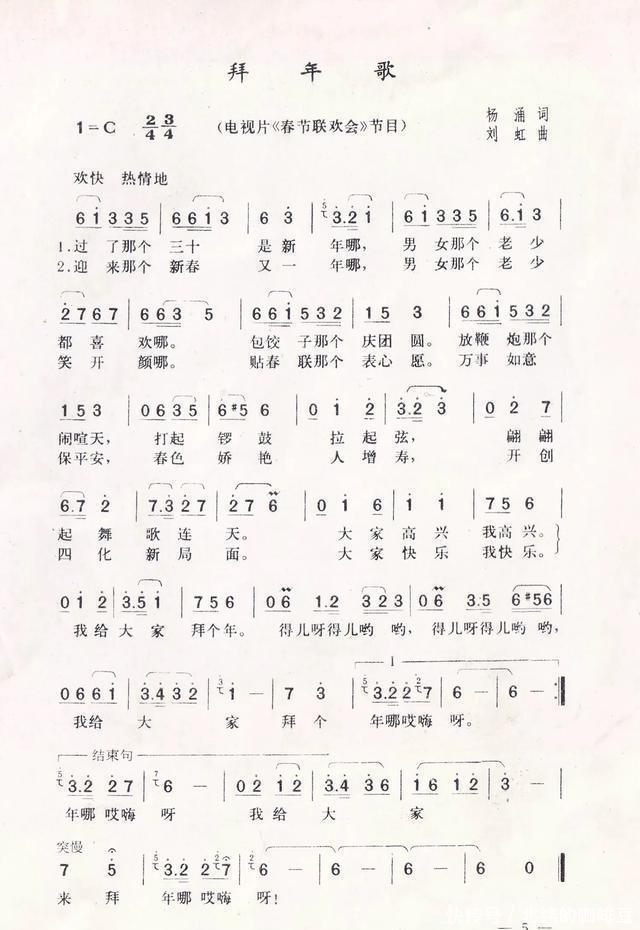 拜 年 歌
杨 涌 词
1=C 2/4 3/4 (电视片《春节联欢会》节目)
刘 虹 曲
欢快 热情地
6 1 3 3 5 | 6 6 1 3 | 6 3 | 3.2 1 | 6 1 3 3 5 | 6.1 3
1.过 了那个 三十 是新 年哪, 男 女那个 老少
2.迎 来那个 新春 又一 年哪, 男 女那个 老少
2 7 6 7 | 6 6 3 5 | 6 6 1 5 3 2 | 1 5 3 | 6 6 1 5 3 2
都 喜 欢哪。 包饺 子那个 庆团 圆。 放鞭 炮那个
笑 开 颜哪。 贴春 联那个 表心 愿。 万事 如意
1 5 3 | 0 6 3 5 | 6 #5 6 | 0 1 2 | 3.2 3 | 0 2 7
闹喧天, 打起 锣鼓 拉起弦, 翩翩
保平安, 春色 娇艳 人增寿, 开创
6.7 2 | 7.3 2 7 | 2 7 6 | 0 1 6 | 1 1 | 7 5 6
起 舞 歌连天。 大家高兴 我高兴。
四 化 新局面。 大家快乐 我快乐。
0 1 2 | 3.5 1 | 7 5 6 | 0 6 1.2 3 2 3 | 0 6 3.5 6 #5 6
我给大家 拜个年。 得儿呀得儿哟 哟, 得儿呀得儿哟 哟,
0 6 6 1 | 3.4 3 2 | 1 — | 7 3 | 3.2 2 7 | 6 — | 6 — :‖
我给 大 家 拜 个 年哪哎嗨 呀。
结束句
3.2 2 7 | 6 — | 0 2 1 2 | 3.4 3 6 | 1 6 1 2 | 3 —
年哪 哎嗨 呀 我给 大 家
突慢
7 5 | 3.2 2 7 | 6 — | 6 — | 6 — | 6 0 ‖
来 拜 年哪 哎嗨 呀!
— 5 —